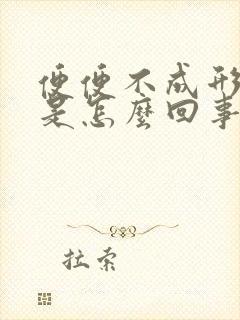 便便不成形
是怎麼回事
拉索